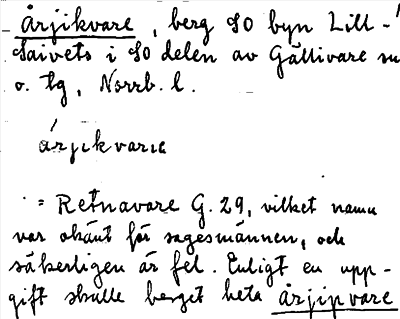 Årjikvare, berg SO byn Lill-
Saivets i SO delen av Gällivare sn
o. tg, Norrb. l.
árjikvari̯e
= Retnavare G. 29, vilket namn
var okänt för sagesmännen, och
säkerligen är fel. Enligt en upp-
gift skulle berget heta årjipvare